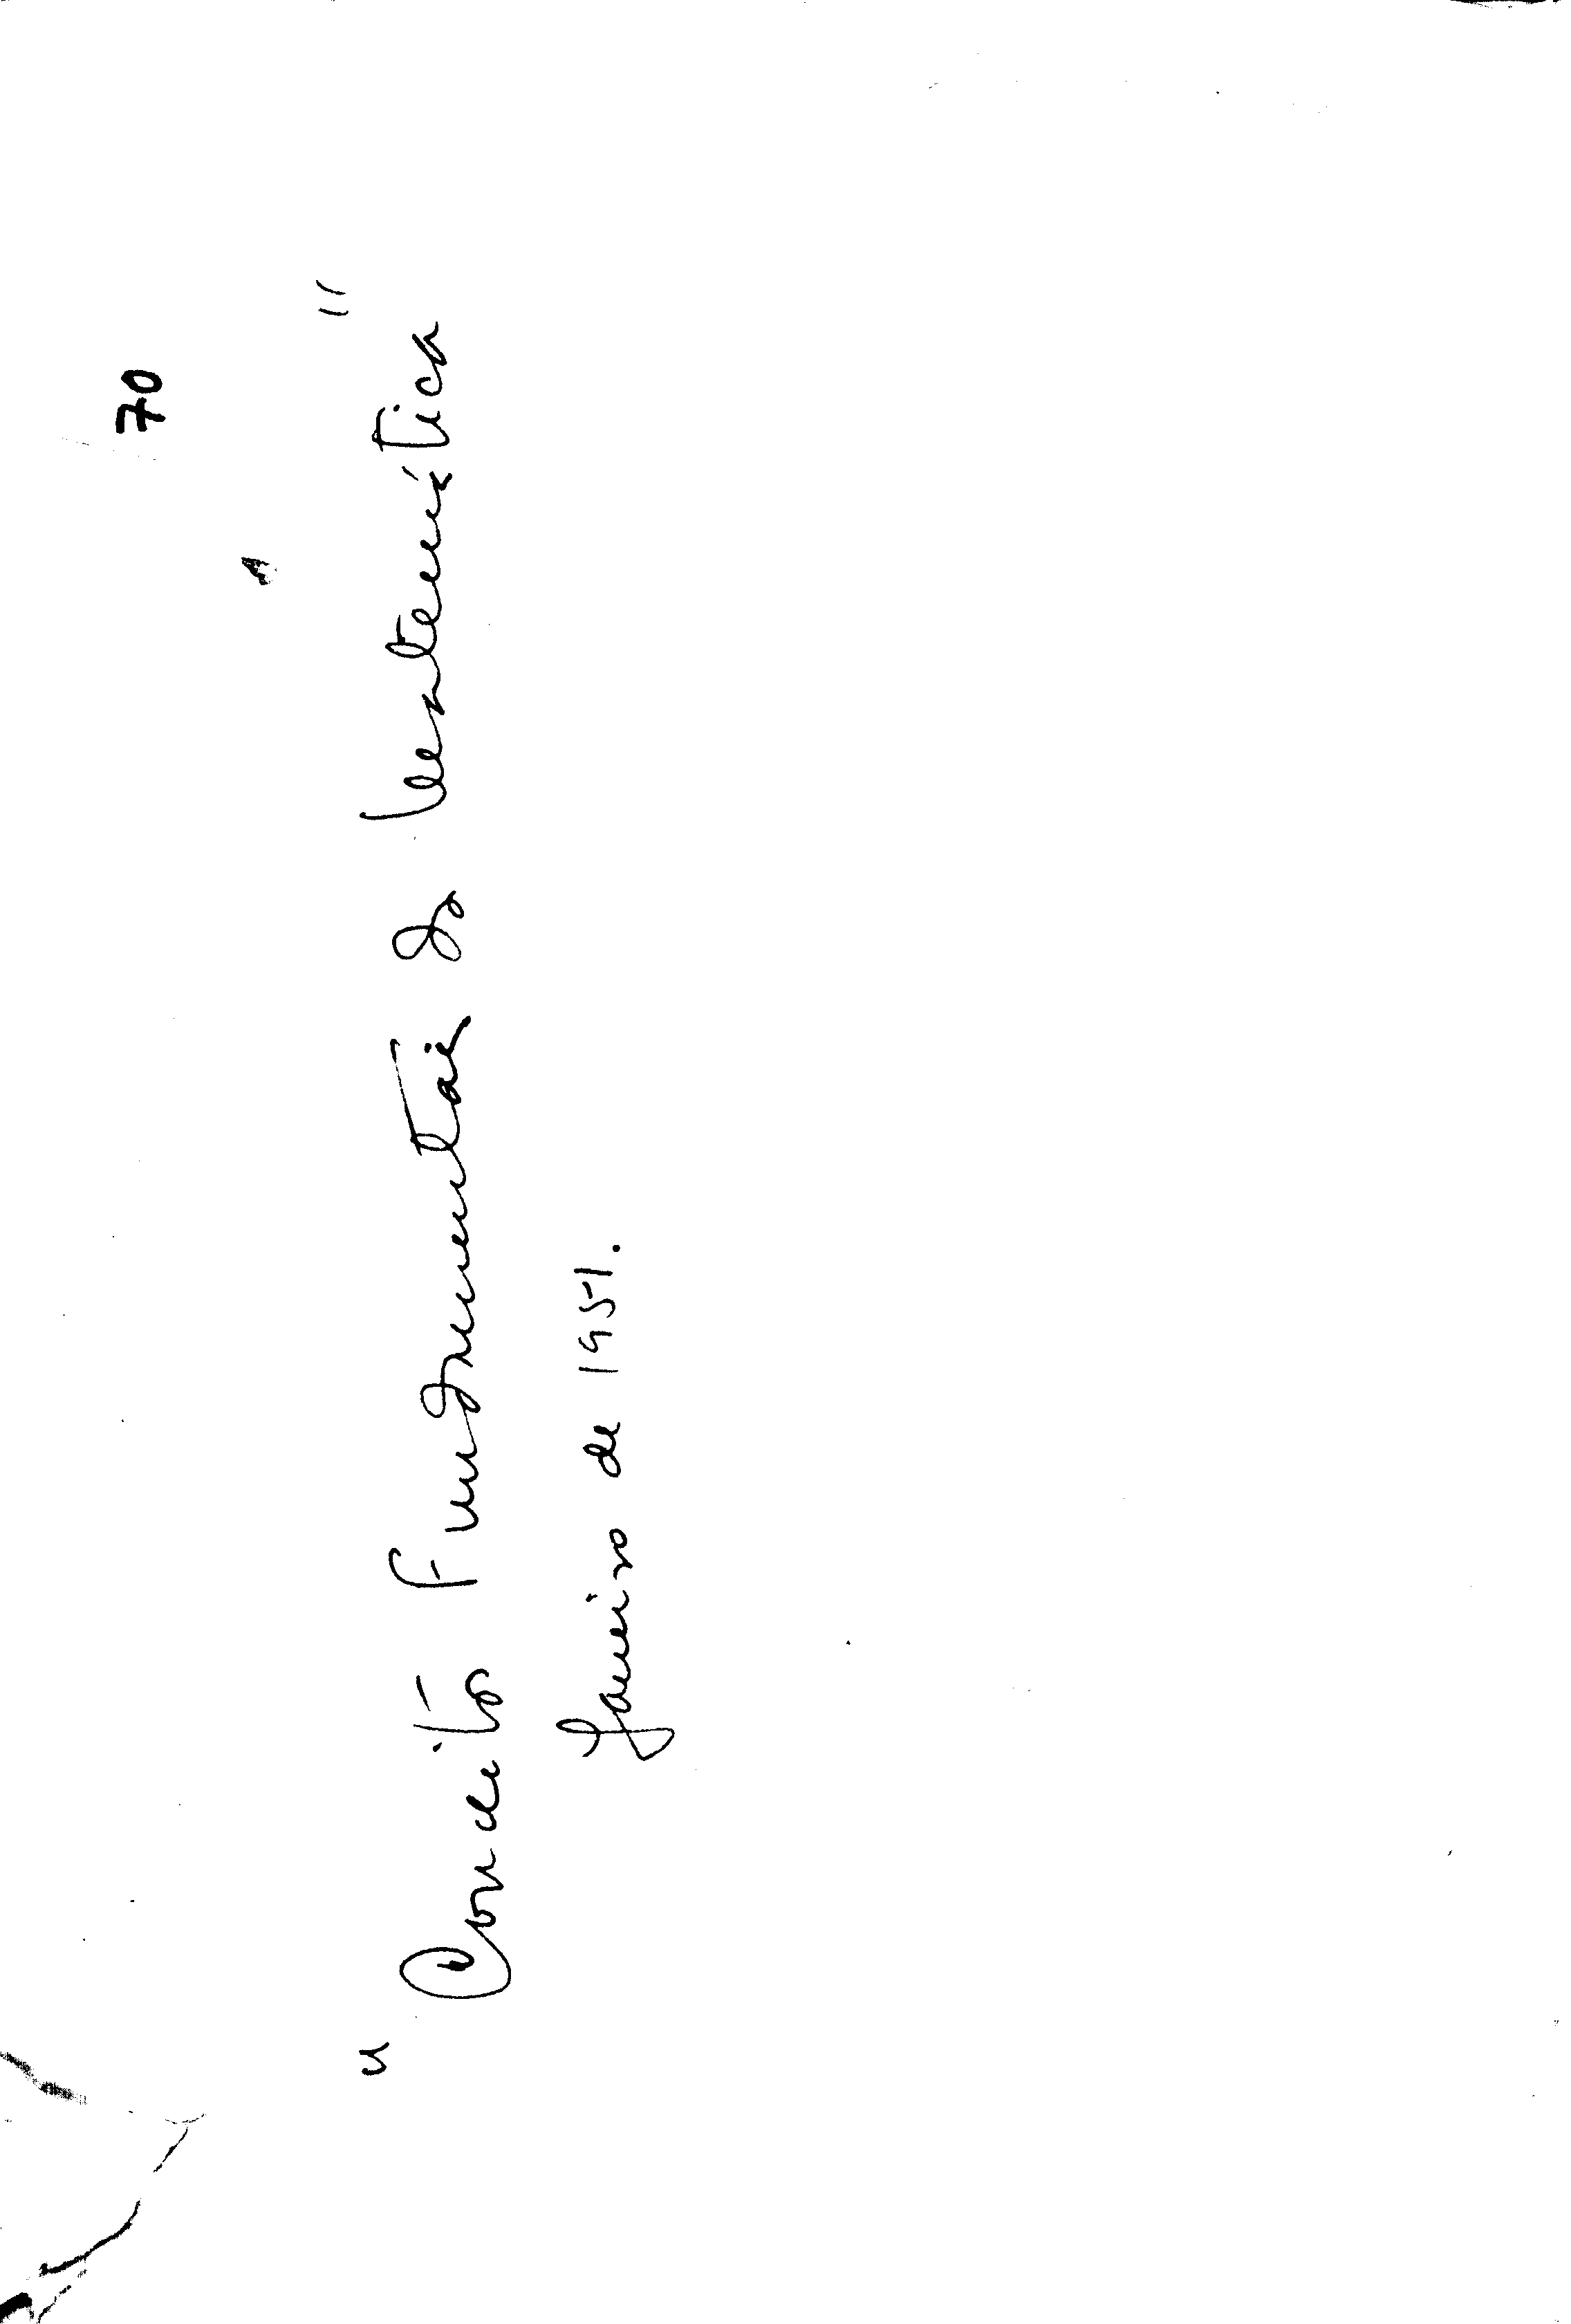 70
"Conceitos Fundamentais da Matemática"
Janeiro de 1951.